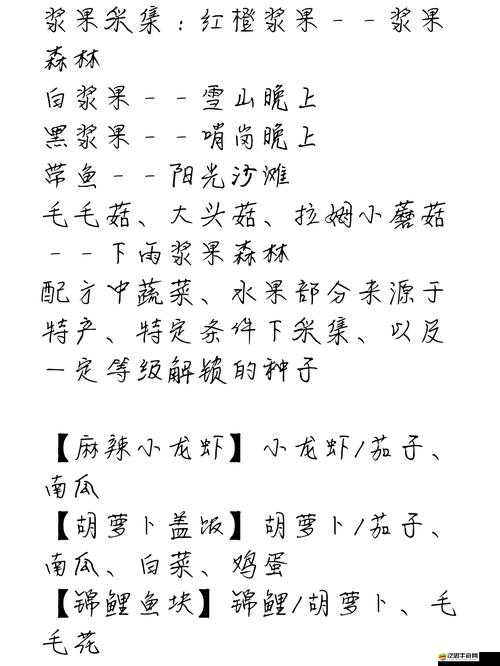 浆果采集：红橙浆果--浆果
森林
白浆果--雪山晚上
黑浆果--哨岗晚上
带鱼--阳光沙滩
毛毛菇、大头菇、拉姆小蘑菇
--下雨浆果森林
配方中蔬菜、水果部分来源于
特产、特定条件下采集、以及
一定等级解锁的种子
【麻辣小龙虾】小龙虾/茄子、
南瓜
【胡萝卜盖饭】胡萝卜/茄子、
南瓜、白菜、鸡蛋
【锦鲤鱼块】锦鲤/胡萝卜、毛
毛花